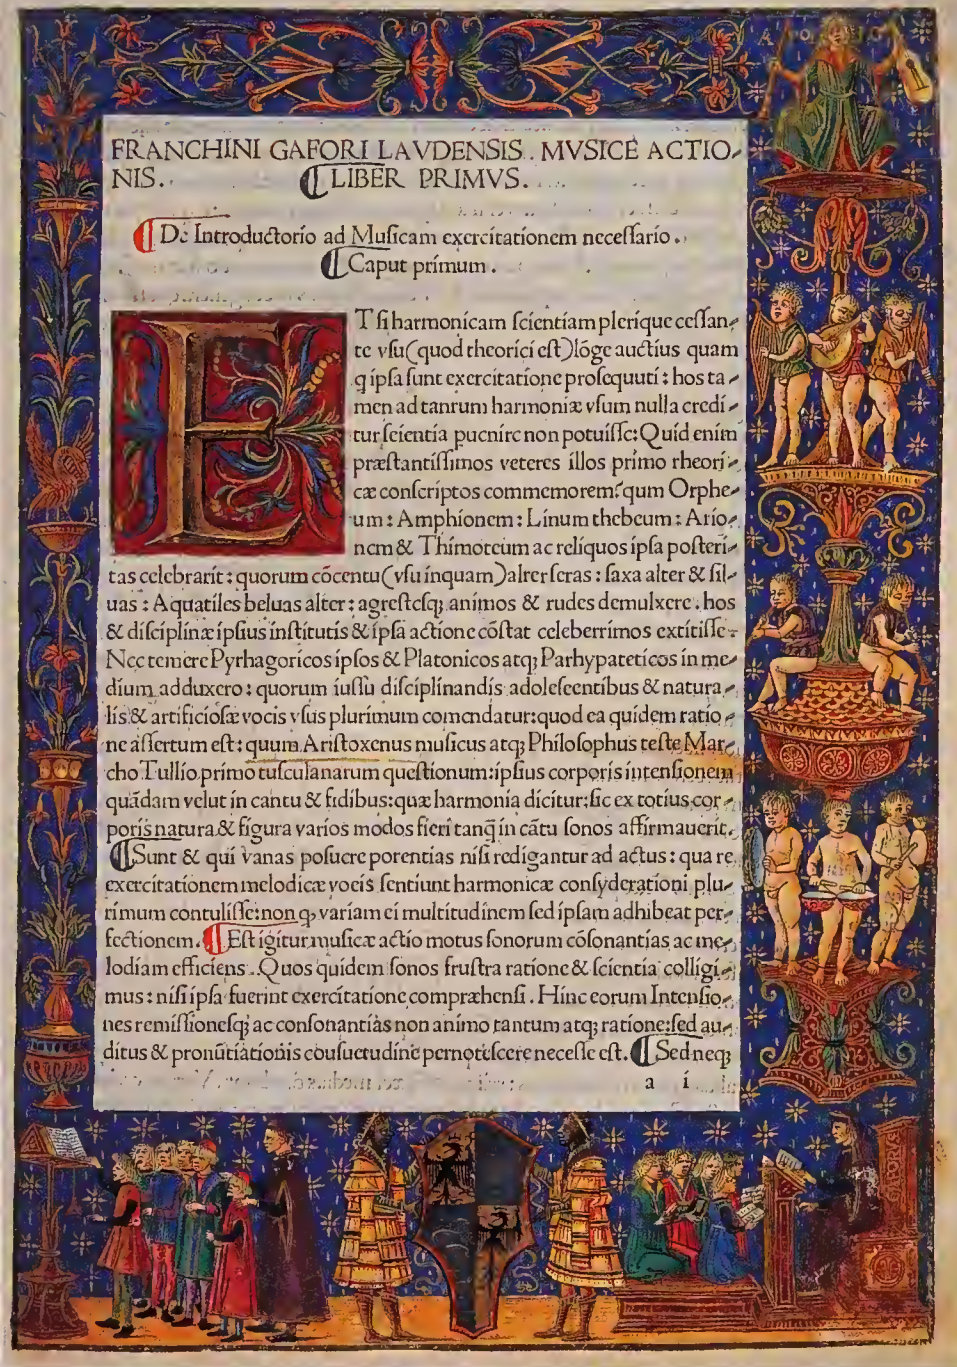 FRANCHINI GAFORI LAVDENSIS. MVSICE ACTIO-
NIS. ¶LIBER PRIMVS.
¶ De Introductorio ad Musicam exercitationem necessario.
¶Caput primum.
ETsi harmonicam scientiam plerique cessan-
te vsu(quod theorici est)lōge auctius quam
q ipsa sunt exercitatione prosequuti: hos ta-
men ad tantum harmoniæ vsum nulla credi-
tur scientia puenire non potuisse: Quid enim
præstantissimos veteres illos primo theori-
cæ conscriptos commemorem? qum Orphe-
um: Amphionem: Linum thebeum: Ario-
nem & Thimoteum ac reliquos ipsa posteri-
tas celebrarit: quorum cōcentu(vsu inquam)alter feras: saxa alter & sil-
uas: Aquatiles beluas alter: agrestesq; animos & rudes demulxere. hos
& disciplinæ ipsius institutis & ipsa actione cōstat celeberrimos extitisse.
Nec temere Pyrhagoricos ipsos & Platonicos atq; Parhypateticos in me-
dium adduxero: quorum iussu disciplinandis adolescentibus & natura-
lis & artificiosæ vocis vsus plurimum comendatur: quod ea quidem ratio-
ne assertum est: quum Aristoxenus musicus atq; Philosophus teste Mar-
cho Tullio primo tusculanarum questionum: ipsius corporis intensionem
quādam velut in cantu & fidibus: quæ harmonia dicitur: sic ex totius cor-
poris natura & figura varios modos fieri tanq̄ in cātu sonos affirmauerit.
¶Sunt & qui vanas posuere potentias nisi redigantur ad actus: qua re
exercitationem melodicæ vocis sentiunt harmonicæ consyderationi plu-
rimum contulisse: non q; variam ei multitudinem sed ipsam adhibeat per-
fectionem. ¶Est igitur musicæ actio motus sonorum cōsonantias ac me-
lodiam efficiens. Quos quidem sonos frustra ratione & scientia colligi-
mus: nisi ipsa fuerint exercitatione compræhensi. Hinc eorum Intensio-
nes remissionesq; ac consonantias non animo tantum atq; ratione: sed au-
ditus & pronūtiationis cōsuetudine pernotescere necesse est. ¶Sed neq;
a i